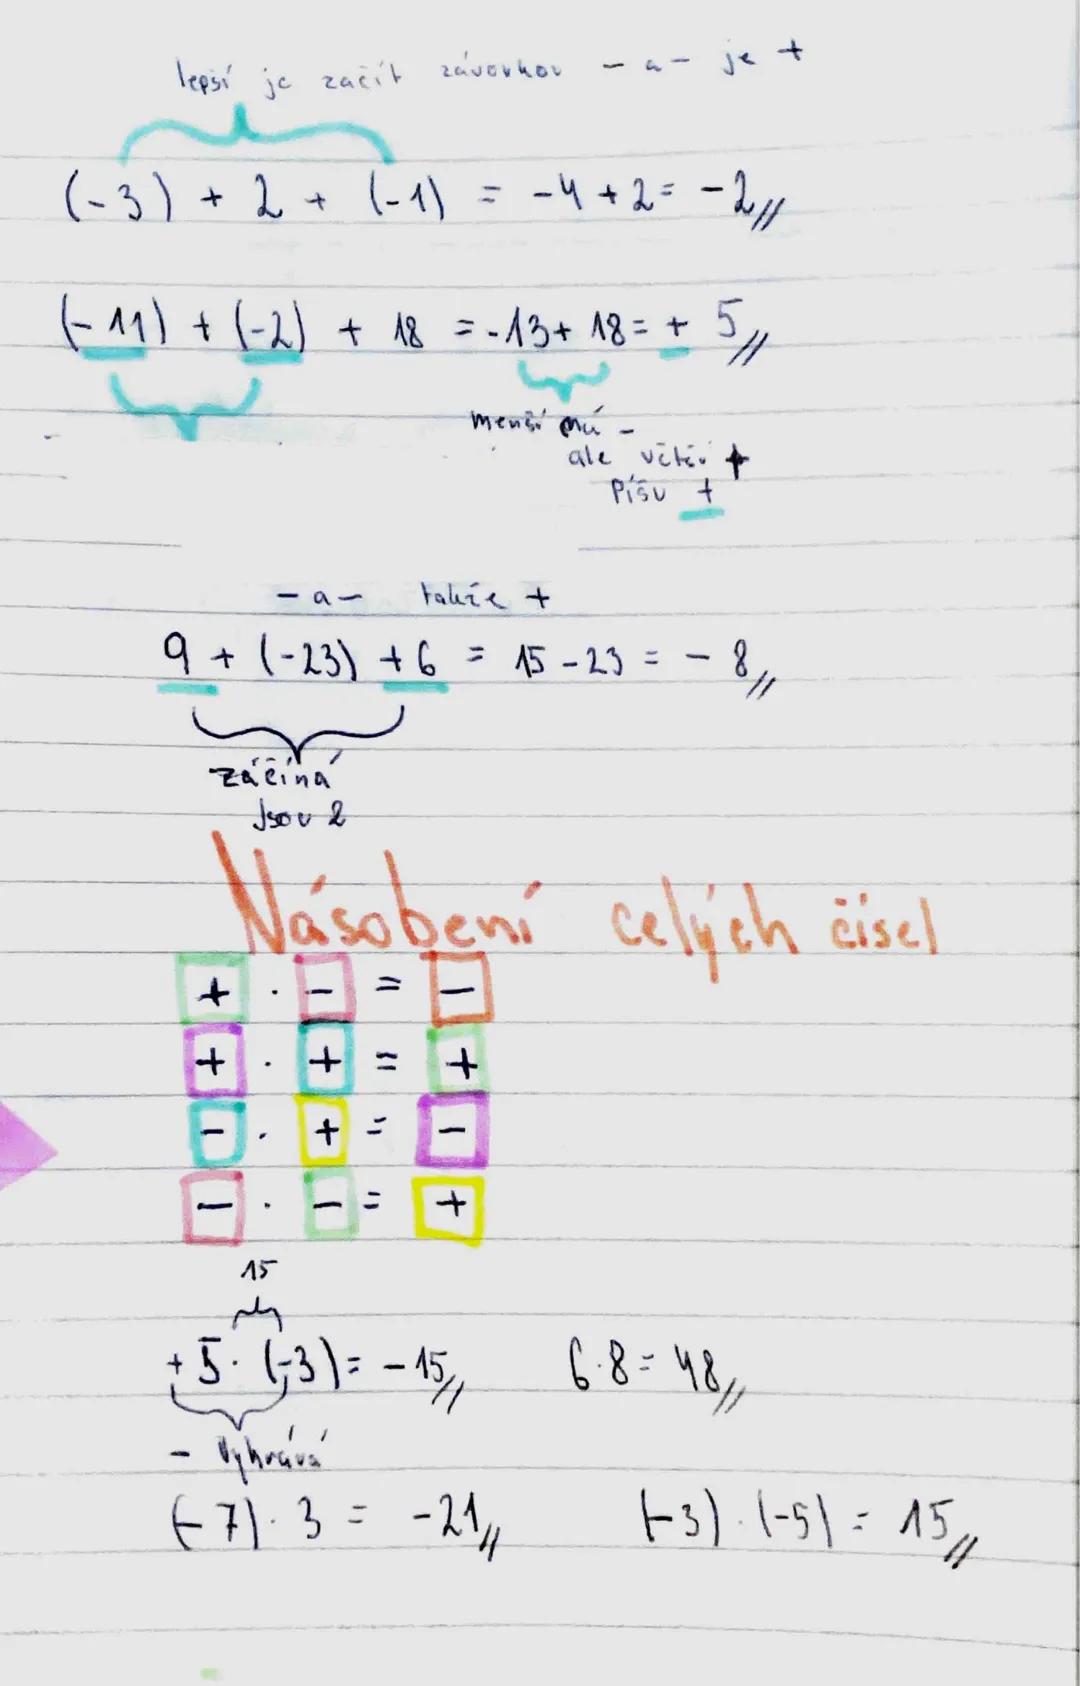 lepší je začít závorkou - a - je +
(-3) + 2 + (-1) = -4 + 2 = -2
(-11) + (-2) + 18 = -13 + 18 = + 5
menší má -
ale větší +
píšu +
- a - takže +
9 + (-23) + 6 = 15 - 23 = - 8
záčíná
jsou 2
Násobení celých čísel
+ · - = -
+ · + = +
- · + = -
- · - = +
15
+ 5 · (-3) = - 15 6·8 = 48
- Vyhrává
(-7) · 3 = -21 (-3) · (-5) = 15